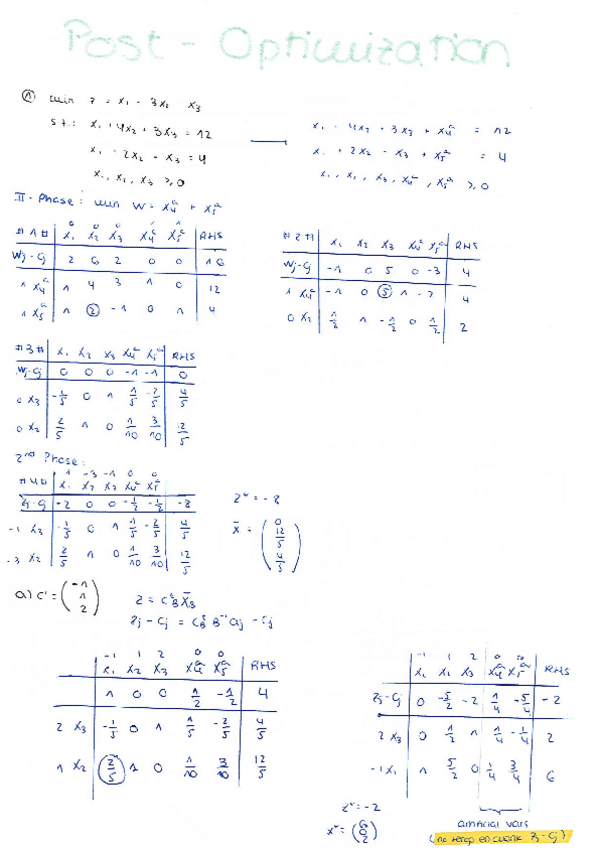 Post - Optimization
① min z = x₁ - 3x₂ - x₃
s.t.: x₁ + 4x₂ + 3x₃ = 12
x₁ + 2x₂ - x₃ = 4
x₁, x₂, x₃ ≥ 0
x₁ + 4x₂ + 3x₃ + x₄ᵃ = 12
x₁ + 2x₂ - x₃ + x₅ᵃ = 4
x₁, x₂, x₃, x₄ᵃ, x₅ᵃ ≥ 0
II - Phase: min W = x₄ᵃ + x₅ᵃ
0 0 0 1 1
#1# x₁ x₂ x₃ x₄ᵃ x₅ᵃ RHS
Wj-Cj 2 6 2 0 0 16
1 x₄ᵃ 1 4 3 1 0 12
1 x₅ᵃ 1 2 -1 0 1 4
#2# x₁ x₂ x₃ x₄ᵃ x₅ᵃ RHS
Wj-Cj -1 0 5 0 -3 4
1 x₄ᵃ -1 0 5 1 -2 4
0 x₂ 1/2 1 -1/2 0 1/2 2
#3# x₁ x₂ x₃ x₄ᵃ x₅ᵃ RHS
Wj-Cj 0 0 0 -1 -1 0
0 x₃ -1/5 0 1 1/5 -2/5 4/5
0 x₂ 2/5 1 0 1/10 3/10 12/5
2nd Phase:
1 -3 -1 0 0
#4# x₁ x₂ x₃ x₄ᵃ x₅ᵃ
Zj-Cj -2 0 0 -1/2 -1/2 -8
-1 x₃ -1/5 0 1 1/5 -2/5 4/5
-3 x₂ 2/5 1 0 1/10 3/10 12/5
z* = -8
x̄ = (0 12/5 4/5)
a) C' = (-1 1 2)
Z = CB B X̄B
Zj - Cj = CB B⁻¹ aj - Cj
-1 1 2 0 0
x₁ x₂ x₃ x₄ᵃ x₅ᵃ RHS
1 0 0 1/2 -1/2 4
2 x₃ -1/5 0 1 1/5 -2/5 4/5
1 x₂ 2/5 1 0 1/10 3/10 12/5
-1 1 2 0 0
x₁ x₂ x₃ x₄ᵃ x₅ᵃ RHS
Zj-Cj 0 -5/2 -2 1/4 -5/4 -2
2 x₃ 0 1/2 1 1/4 -1/4 2
-1 x₁ 1 5/2 0 1/4 3/4 6
z* = -2
x* = (6 0 2)
artificial vars
(no tengo en cuenta Zj-Cj)